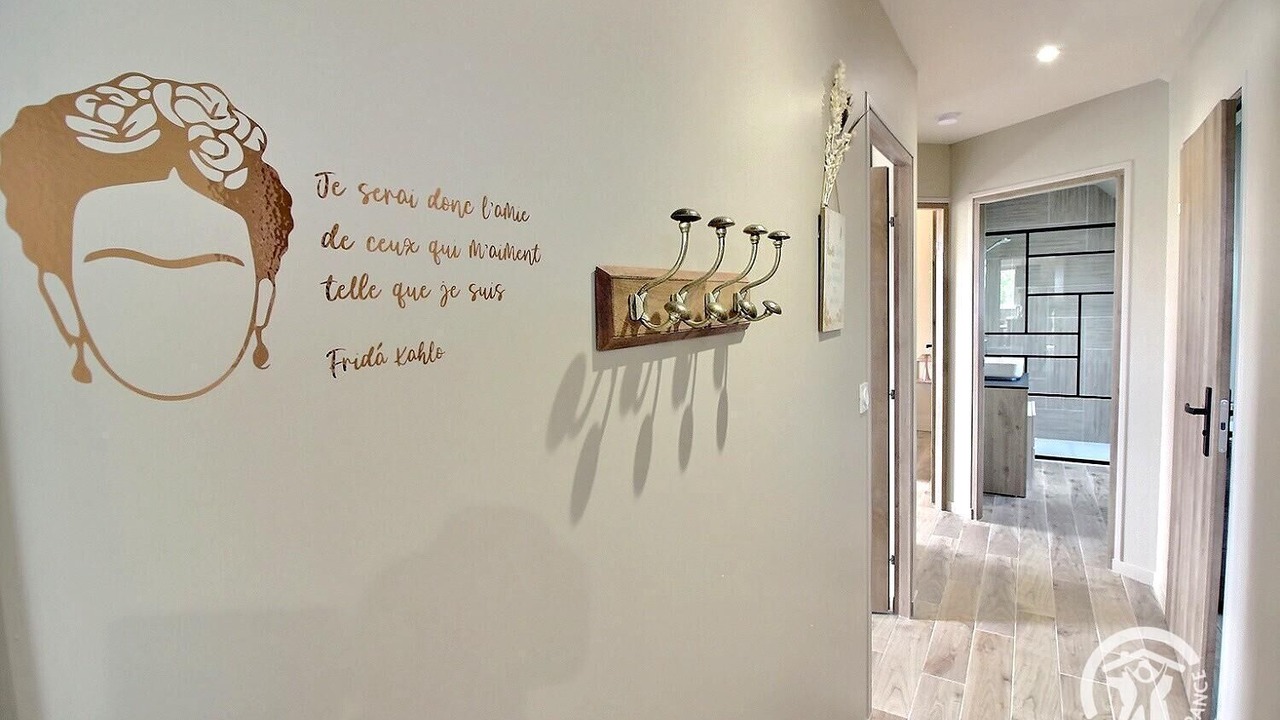 Je serai donc l'amie
de ceux qui m'aiment
telle que je suis
Fridá Kahlo
ANCE